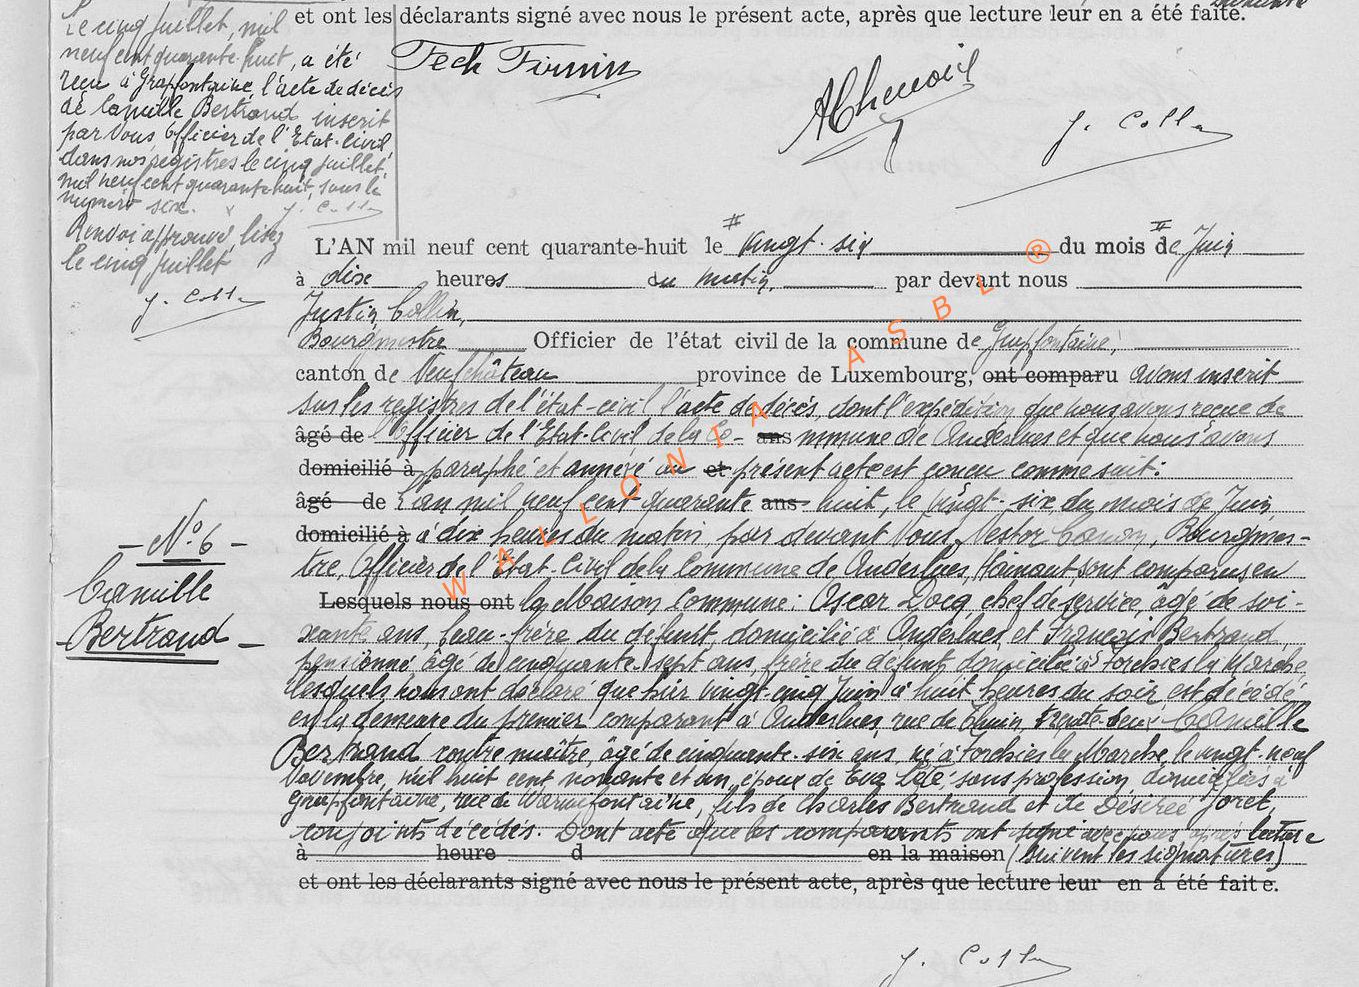 et ont les déclarants signé avec nous le présent acte, après que lecture leur en a été faite.
Le cinq juillet, mil
neuf cent quarante-huit, a été
reçu à Grapfontaine, l'acte de décès
de Camille Bertrand inscrit
par Vous, Officier de l'Etat-Civil
dans nos registres le cinq juillet,
mil neuf cent quarante-huit, sous le
numéro six. J. Collin
Renvoi approuvé, lisez
le cinq juillet
J. Collin
Fech Firmin
J. Collin
L'AN mil neuf cent quarante-huit le vingt-six du mois de Juin
à dix heures du matin, par devant nous
Justin Collin,
Bourgmestre Officier de l'état civil de la commune de Grapfontaine,
canton de Neufchâteau province de Luxembourg, ont comparu avons inscrit
sur les registres de l'état-civil l'acte de décès, dont l'expédition que nous avons reçue de
âgé de l'Officier de l'Etat-Civil de la Co- ans mmune de Anderlues et que nous avons
domicilié à paraphé et annexé au et présent acte est conçu comme suit:
âgé de L'an mil neuf cent quarante ans huit, le vingt-six du mois de Juin
domicilié à à dix heures du matin par devant Nous, Nestor Canon, Bourgmes-
tre, Officier de l'Etat-Civil de la Commune de Anderlues, Hainaut, sont comparus en
Lesquels nous ont la Maison Commune: Oscar Docq chef de service, âgé de soi-
xante ans, beau-frère du défunt, domicilié à Anderlues et François Bertrand
pensionné âgé de cinquante-sept ans, frère du défunt domicilié à Forchies la Marche,
lesquels nous ont déclaré que hier vingt-cinq Juin à huit heures du soir est décédé
en la demeure du premier comparant à Anderlues, rue de Thuin, trente-deux Camille
Bertrand contre-maître, âgé de cinquante-six ans, né à Forchies la Marche, le vingt-neuf
Novembre, mil huit cent nonante et un, époux de Eva sans profession, domiciliés à
Grapfontaine, rue de Warmifontaine, fils de Charles Bertrand et de Désirée Joret,
conjoints décédés. Dont acte que les comparants ont signé avec nous après lecture
à heure d en la maison (suivent les signatures)
et ont les déclarants signé avec nous le présent acte, après que lecture leur en a été faite.
- N° 6 -
Camille
Bertrand -
J. Collin
WALLONIA ASBL ®